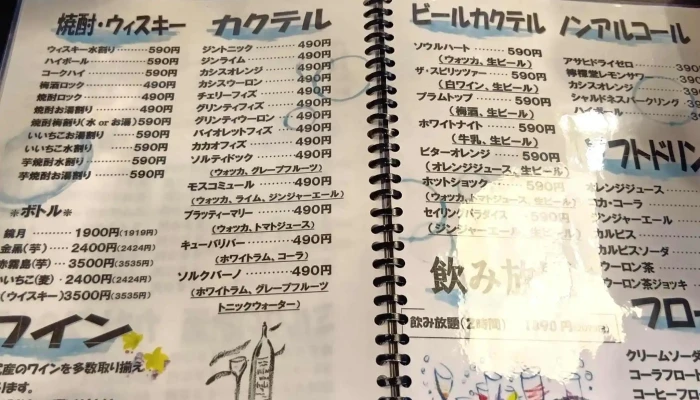 焼酎・ウィスキー
ウィスキー水割り……590円
ハイボール…………590円
コークハイ…………590円
梅酒ロック…………490円
焼酎ロック…………490円
焼酎お湯割り………590円
焼酎梅割り(水 or お湯)…590円
いいちこお湯割り…590円
いいちこ水割り……590円
芋焼酎水割り………590円
芋焼酎お湯割り……590円
※ボトル※
鏡月………1900円(1919円)
金黒(芋)…2400円(2424円)
赤霧島(芋)…3500円(3535円)
いちこ(麦)・2400円(2424円)
(ウイスキー)3500円(3535円)
ワイン
産のワインを多数取り揃え
ます。
カクテル
ジントニック………490円
ジンライム…………490円
カシスオレンジ……490円
カシスウーロン……490円
チェリーフィズ……490円
グリンティフィズ…490円
グリンティウーロン…490円
バイオレットフィズ…490円
カカオフィズ………490円
ソルティドック……490円
(ウォッカ、グレープフルーツ)
モスコミュール……490円
(ウォッカ、ライム、ジンジャーエール)
ブラッティーマリー…490円
(ウォッカ、トマトジュース)
キューバリバー……490円
(ホワイトラム、コーラ)
ソルクバーノ………490円
(ホワイトラム、グレープフルーツ
トニックウォーター)
ビールカクテル
ソウルハート………590円
(ウォッカ、生ビール)
ザ・スピリッツァー…590円
(白ワイン、生ビール)
プラムトップ………590円
(梅酒、生ビール)
ホワイトナイト……590円
(牛乳、生ビール)
ビターオレンジ……590円
(オレンジジュース、生ビール)
ホットショック……590円
(ウォッカ、トマトジュース、生ビール)
セイリングパラダイス…590円
(ジンジャーエール、生ビール)
飲み放
飲み放題(2時間)
ノンアルコール
アサヒドライゼロ……390
檸檬堂レモンサワー…390
カシスオレンジ
シャルドネスパークリング
ハイボール
フトドリン
オレンジジュース
コカ・コーラ
ジンジャーエール
カルピス
カルピスソーダ
ウーロン茶
ウーロン茶ジョッキ
フロー
クリームソーダ
コーラフロート
コーヒーフロ